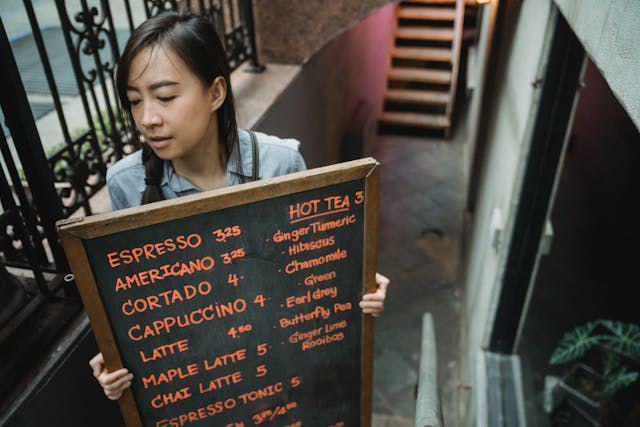 ESPRESSO 3,25
AMERICANO 3,25
CORTADO 4.
CAPPUCCINO 4.
LATTE 4,50
MAPLE LATTE 5
CHAI LATTE 5
ESPRESSO TONIC 5
HOT TEA 3
. Ginger Turmeric
. Hibiscus
. Chamomile
. Green
. Earl Grey
. Butterfly Pea
. Ginger Lime
. Rooibos